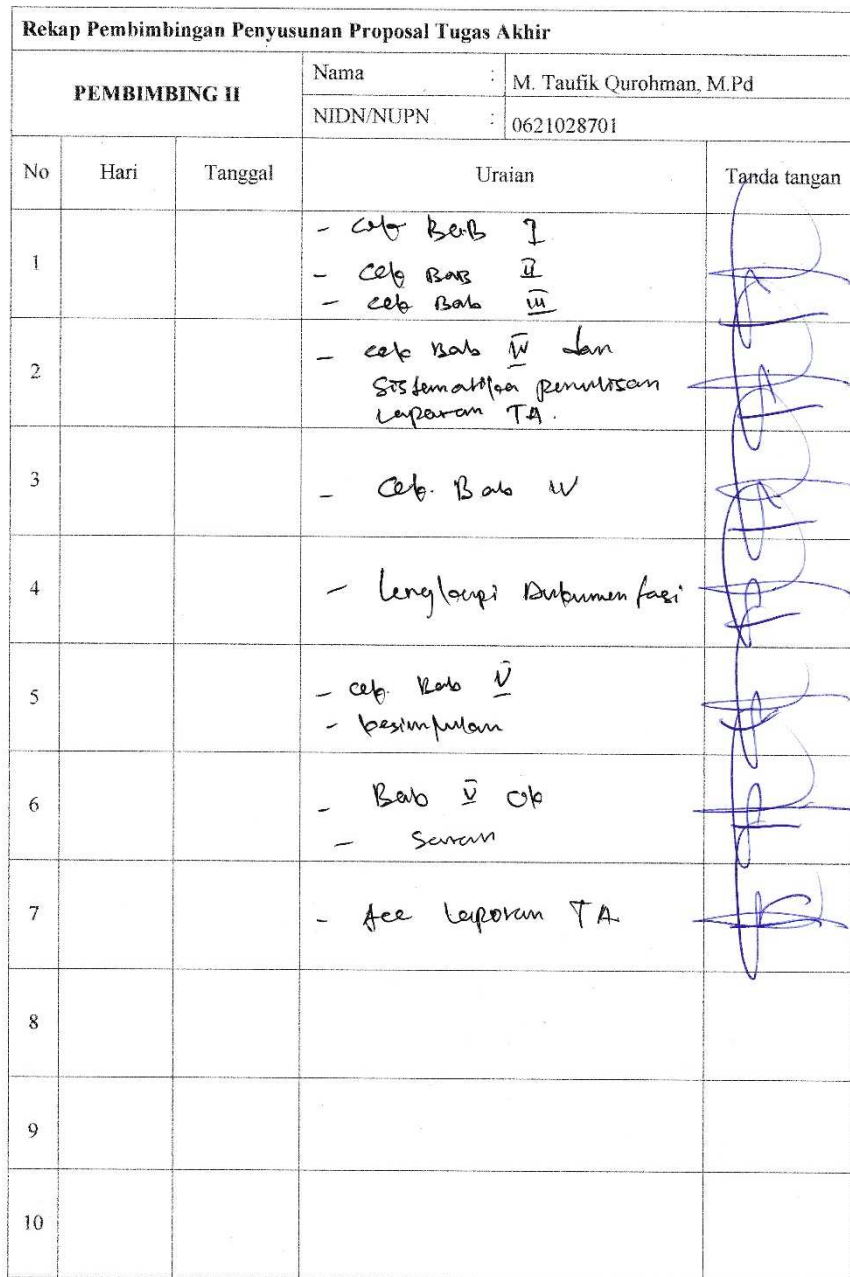 Rekap Pembimbingan Penyusunan Proposal Tugas Akhir
PEMBIMBING II
Nama : M. Taufik Qurohman, M.Pd
NIDN/NUPN : 0621028701
No Hari Tanggal Uraian Tanda tangan
1
- Cek BaB I
- Cek BaB II
- cek Bab III
2
- cek Bab IV dan
Sistematika penulisan
Laporan TA.
3
- Cek. Bab IV
4
- lengkapi Dokumentasi
5
- cek. Bab V
- kesimpulan
6
- Bab V ok
- Saran
7
- Acc Laporan TA
8
9
10